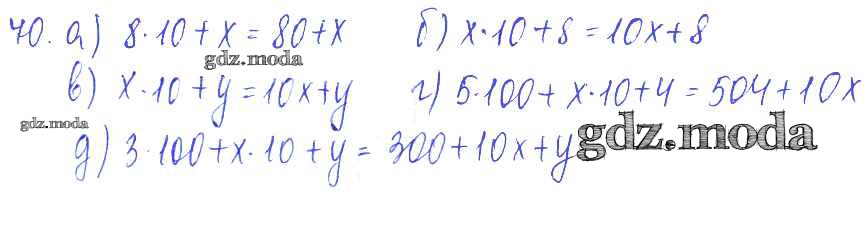 70. а) 8·10+x=80+x б) x·10+8=10x+8
gdz.moda
в) x·10+y=10x+y г) 5·100+x·10+4=504+10x
gdz.moda
д) 3·100+x·10+y=300+10x+y
gdz.moda